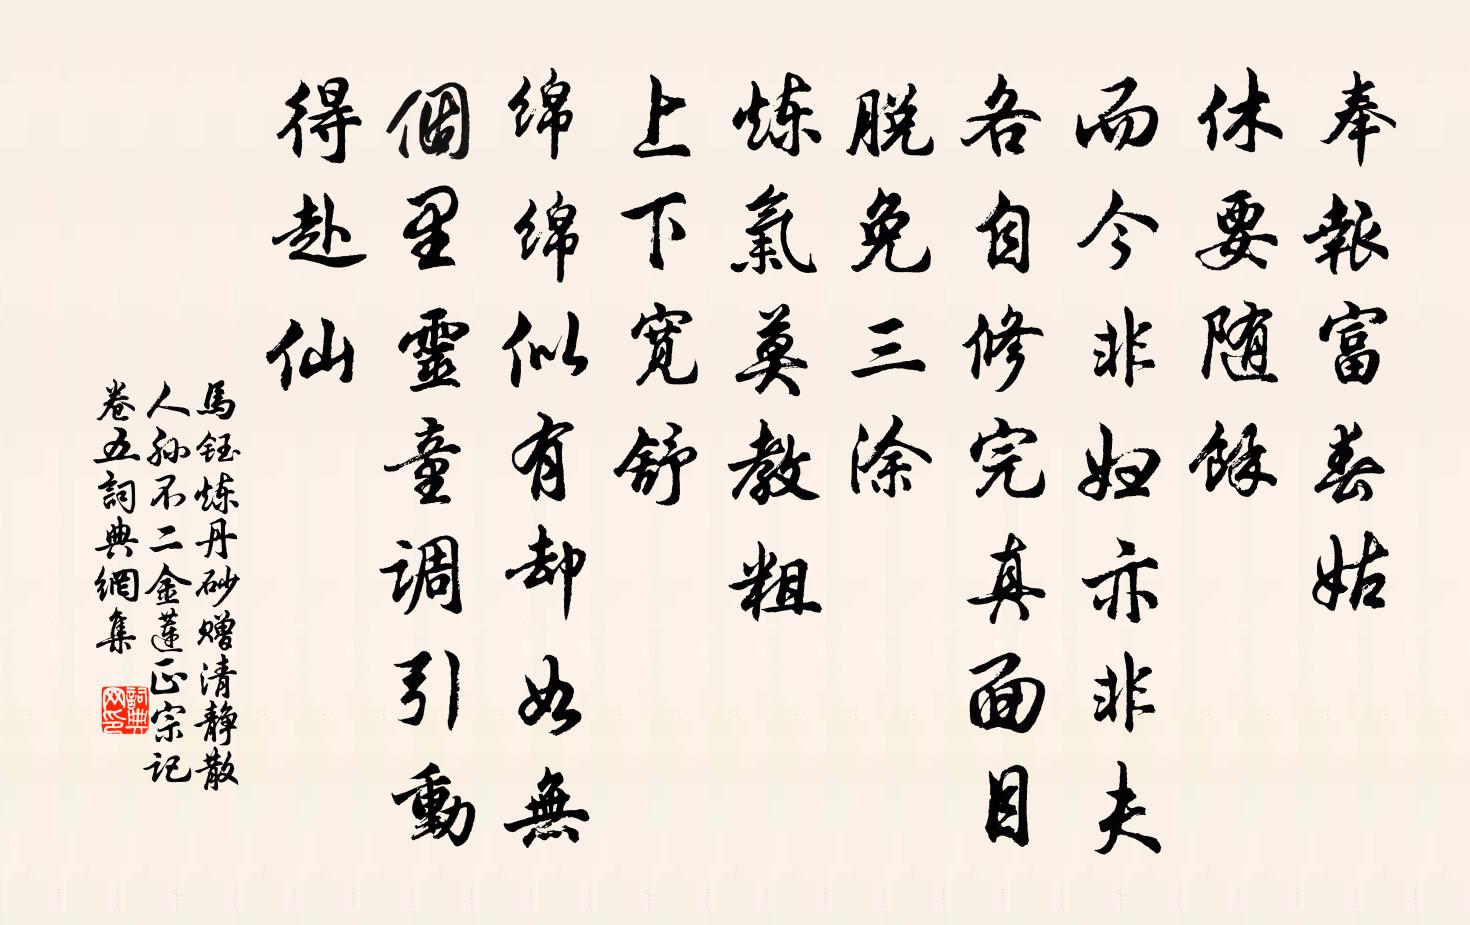 奉報富春姑
休要随餘
而今非妇亦非夫
各自修完真面目
脱免三涂
炼氣莫教粗
上下宽舒
绵绵似有却如無
個里靈童调引動
得赴仙
馬钰炼丹砂赠清静散
人孙不二金莲正宗记
卷五詞典網集
詞典网印